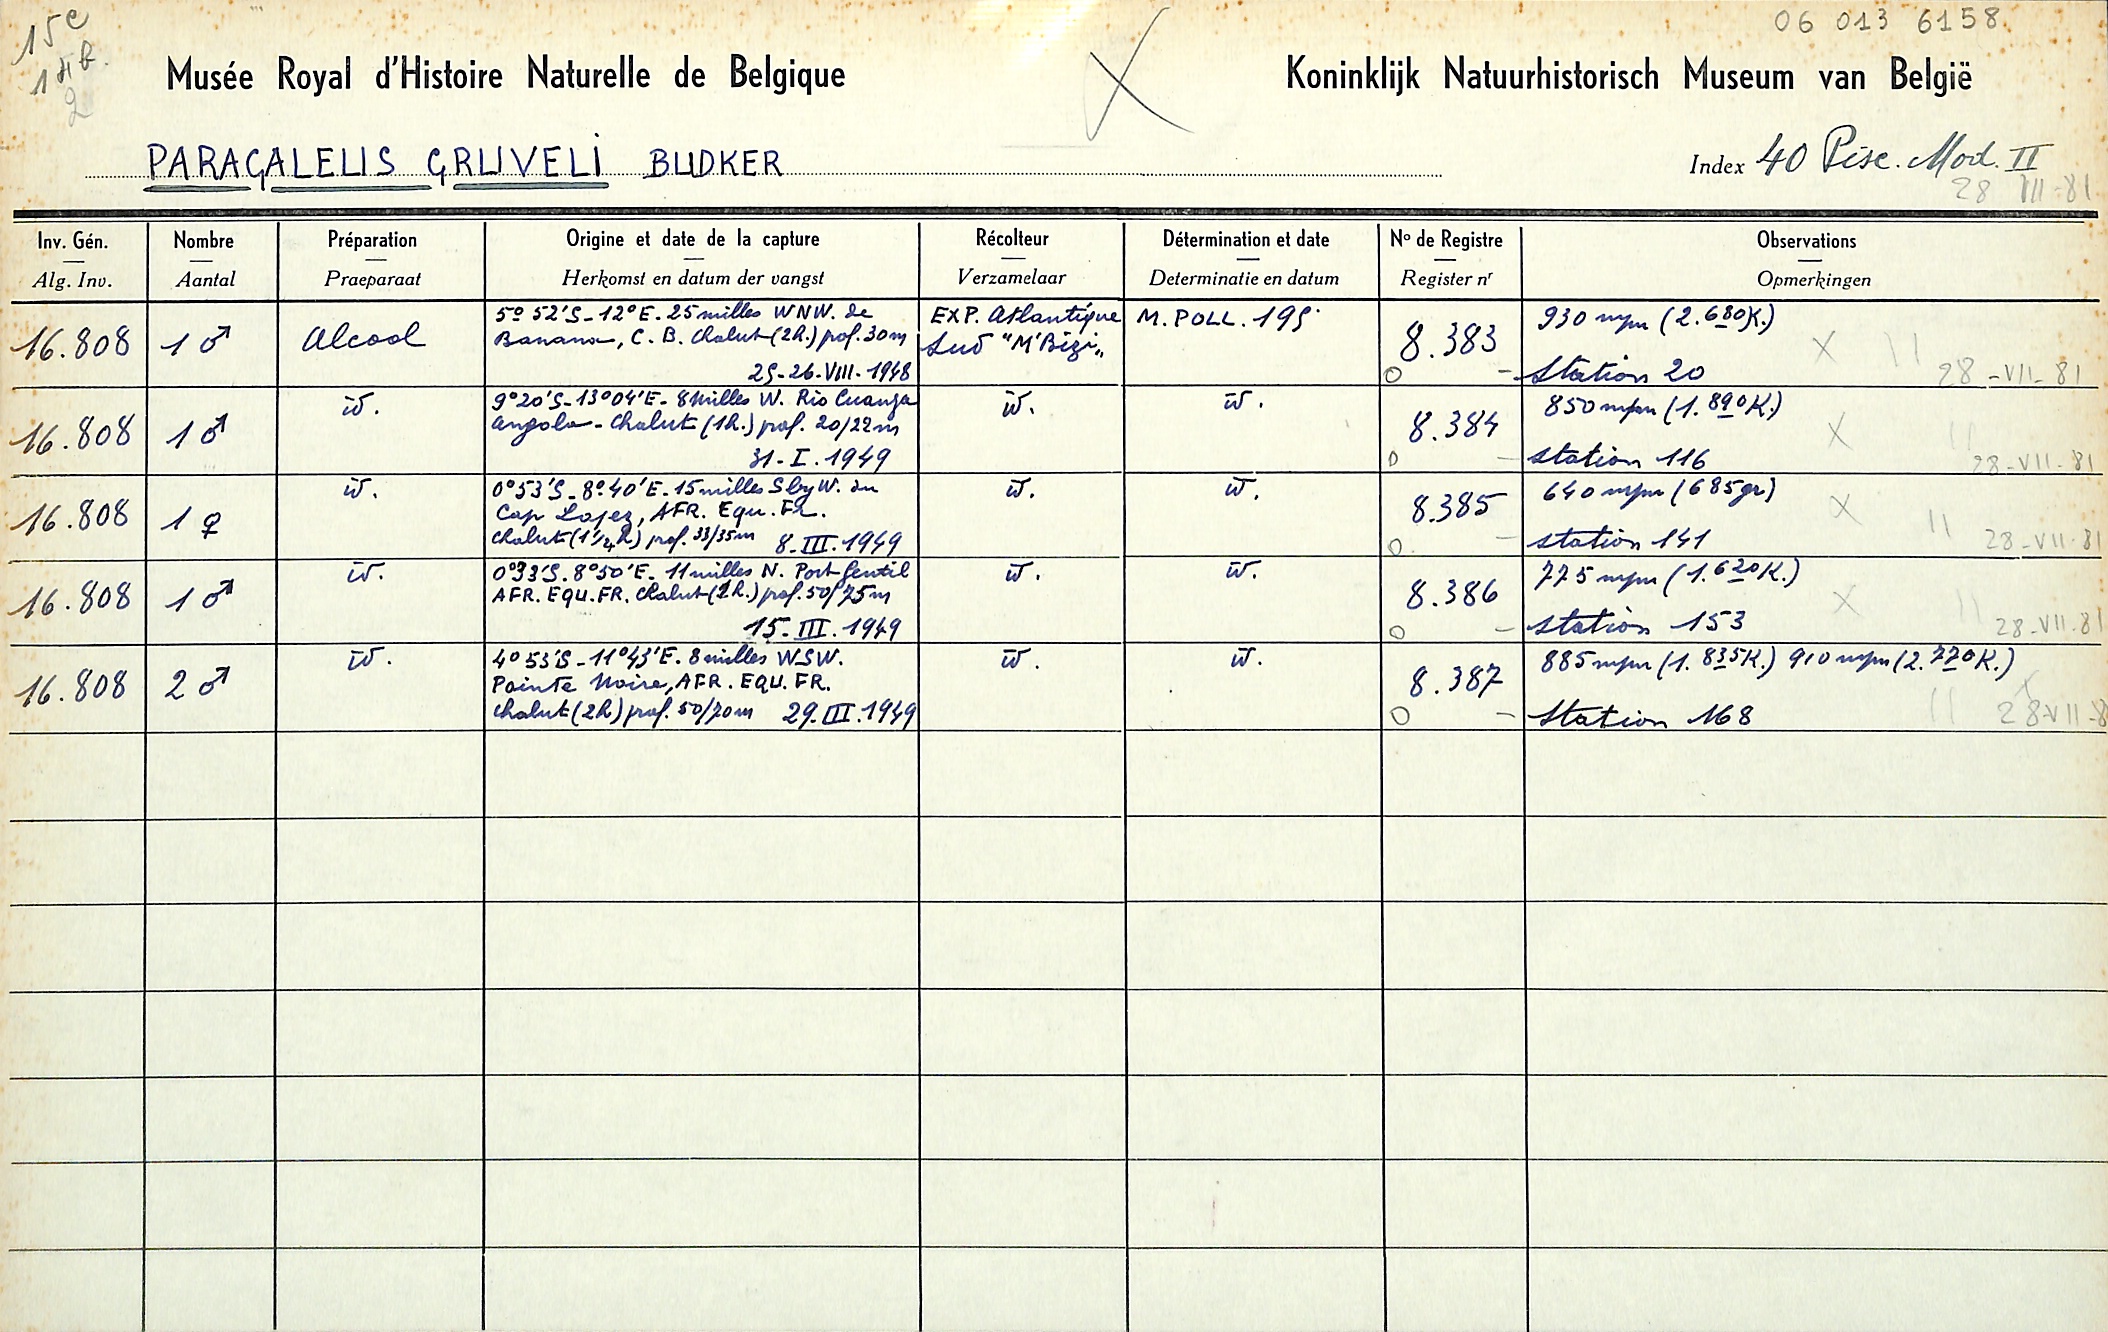 15e
1 π b.
2
06 013 6158
Musée Royal d'Histoire Naturelle de Belgique
Koninklijk Natuurhistorisch Museum van België
PARAGALEUS GRUVELI BUDKER
Index 40 Pisc. Mod. II
28 VII-81
Inv. Gén. Nombre Préparation Origine et date de la capture Récolteur Détermination et date N° de Registre Observations
Alg. Inv. Aantal Praeparaat Herkomst en datum der vangst Verzamelaar Determinatie en datum Register nr Opmerkingen
16.808 1 ♂ Alcool
5° 52'S-12°E. 25 milles WNW. de
Banana, C. B. Chalut (2h.) prof. 30m
25-26-VIII-1948
EXP. Atlantique
Sud "M'Bizi"
M. POLL. 195
8.383
930 mm (2.680K.)
Station 20
28-VII-81
16.808 1 ♂ id.
9°20'S-13°04'E- 8 milles W. Rio Cuanza
Angola - Chalut (1h.) prof. 20/22m
31-I.1949
id. id.
8.384
850 mm (1.890K.)
station 116
28-VII-81
16.808 1 ♀ id.
0°53'S-8°40'E-15 milles S by W. du
Cap Lopez, AFR. Equ. Fr.
chalut (1 1/4 h) prof. 33/35m 8-III.1949
id. id.
8.385
640 mm (685gr)
station 141
28-VII-81
16.808 1 ♂ id.
0°33'S. 8°50'E. 11 milles N. Port Gentil
AFR. EQU. FR. Chalut (2h.) prof. 50/75m
15-III.1949
id. id.
8.386
775 mm (1.620K.)
station 153
28-VII-81
16.808 2 ♂ id.
4°53'S-11°43'E. 8 milles WSW.
Pointe Noire, AFR. EQU. FR.
chalut (2h) prof. 50/70m 29.III.1949
id. id.
8.387
885 mm (1.835K.) 910 mm (2.770K.)
Station 168
28-VII-8